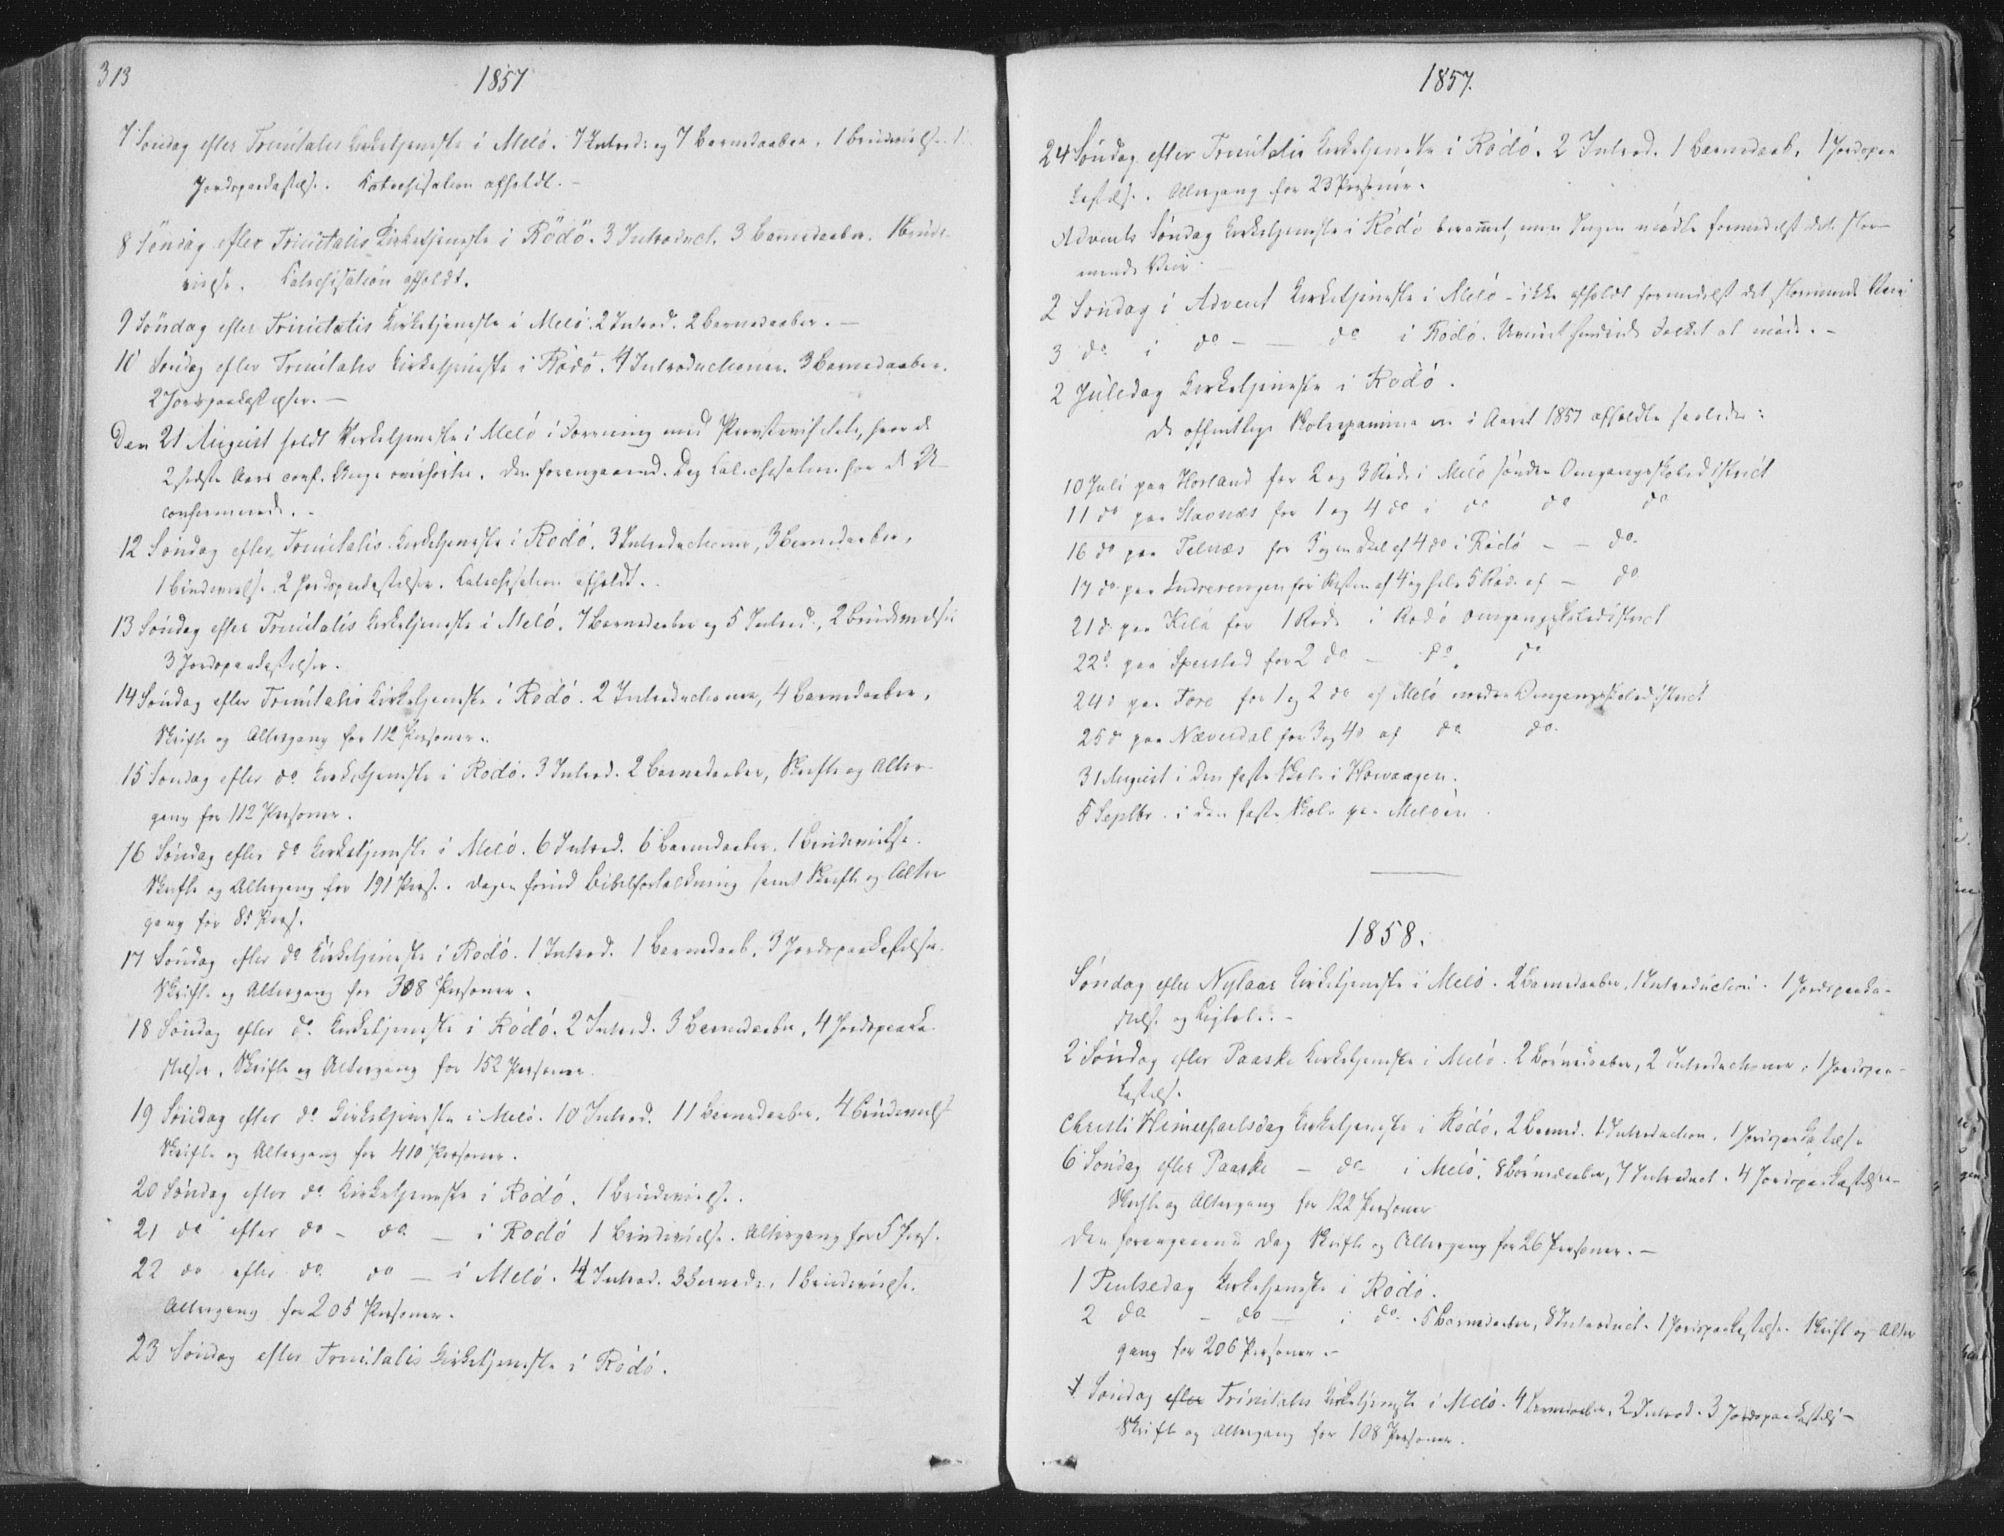 313
1857
7 Søndag efter Trinitatis Kirketjeneste i Melö. 7 Introd: og 7 Barnedaaber. 1 Brudevielse. 1
Jordspaakastelse. Catechisation afholdt. –
8 Søndag efter Trinitatis Kirketjeneste i Rödö. 3 Introduct. 3 Barnedaaber. 1 Brude-
vielse. Catechisation afholdt.
9 Søndag efter Trinitatis Kirketjeneste i Melö. 2 Introd. 2 Barnedaaber. –
10 Søndag efter Trinitatis Kirketjeneste i Rödö. 4 Introductioner. 3 Barnedaaber.
2 Jordspaakastelser. –
Den 21 August holdt Kirketjeneste i Melö i Forening med Provstevisitats, hvor de
2 sidste Aars conf. Unge overhørtes. Den foregaaende Dag Catechisation for de U-
confirmerede. –
12 Søndag efter Trinitatis Kirketjeneste i Rödö. 3 Introductioner, 3 Barnedaaber,
1 Brudevielse. 2 Jordspaakastelser. Catechisation afholdt. –
13 Søndag efter Trinitatis Kirketjeneste i Melö. 7 Barnedaaber og 5 Introd., 2 Brudevielser
3 Jordspaakastelser.
14 Søndag efter Trinitatis Kirketjeneste i Rödö. 2 Introductioner, 4 Barnedaaber,
Skrifte og Altergang for 112 Personer.
15 Søndag efter do Kirketjeneste i Rödö. 3 Introd. 2 Barnedaaber, Skrifte og Alter-
gang for 112 Personer.
16 Søndag efter do Kirketjeneste i Melö. 6 Introd. 6 Barnedaaber. 1 Brudevielse.
Skrifte og Altergang for 191 Pers. Dagen forud Bibelfortolkning samt Skrifte og Alter
gang for 85 Pers.
17 Søndag efter do Kirketjeneste i Rödö. 1 Introd. 1 Barnedaab. 3 Jordspaakastelser.
Skrifte og Altergang for 308 Personer.
18 Søndag efter do Kirketjeneste i Rödö. 2 Introd. 3 Barnedaaber, 4 Jordspaaka-
stelser. Skrifte og Altergang for 152 Personer.
19 Søndag efter do Kirketjeneste i Melö. 10 Introd. 11 Barnedaaber. 4 Brudevielser
Skrifte og Altergang for 410 Personer.
20 Søndag efter do Kirketjeneste i Rödö. 1 Brudevielse.
21 do efter do – do – i Rödö 1 Brudevielse. Altergang for 5 Pers.
22 do efter do do – i Melö. 4 Introd. 3 Barned., 1 Brudevielse.
Altergang for 205 Personer.
23 Søndag efter Trinitatis Kirketjeneste i Rödö.
1857.
24 Søndag efter Trinitatis Kirketjeneste i Rödö. 2 Introd. 1 Barnedaab. 1 Jordspaa
kastelse. Altergang for 23 Personer.
Advents Søndag Kirketjeneste i Rödö berammet, men Ingen mødte formedelst det stor-
mende Veir.
2 Søndag i Advent Kirketjeneste i Melö – ikke afholdt formedelst det stormende Veir
3 do i do – – do i Rödö. Uveiret hindrede Folket at møde. –
2 Juledag Kirketjeneste i Rödö.
De offentlige Skoleexamina ere i Aaret 1857 afholdte saaledes:
10 Juli paa Horland for 2 og 3 Rode i Melö søndre Omgangsskoledistrict
11 do paa Stavnæs for 1 og 4 do i do do do
16 do paa Telnæs for 3 og en Deel af 4 do i Rödö – – do
17 do paa Indrevengen for Resten af 4 og hele 5 Rode af – do
21 do paa Kila for 1 Rode i Rödö Omgangsskoledistrict
22 do paa Spersted for 2 do – do. do
24 do paa Fore for 1 og 2 do af Melö nordre Omgangsskoledistrict
25 do paa Næverdal for 3 og 4 do af do do.
31 August i den faste Skole i Havaagen.
5 Septbr. i den faste Skole paa Melöen.
1858.
Søndag efter Nytaar Kirketjeneste i Melö. 2 Barnedaaber, 1 Introduction. 1 Jordspaaka-
stelse og Ligtale. –
2 Søndag efter Paaske Kirketjeneste i Melö. 2 Børnedaaber, 2 Introductioner, 1 Jordspaa-
kastelse.
Christi Himmelfartsdag Kirketjeneste i Rödö. 2 Barned. 1 Introduction. 1 Jordspaakastelse
6 Søndag efter Paaske – do – i Melö. 8 Børnedaaber, 7 Introduct. 4 Jordspaakastelser –
Skrifte og Altergang for 122 Personer
Den foregaaende Dag Skrifte og Altergang for 26 Personer. –
1 Pintsedag Kirketjeneste i Rödö.
2 do – do – i do. 5 Barnedaaber, 8 Introduct. 1 Jordspaakastelse. Skrift og Alter
gang for 206 Personer. –
Søndag efter Trinitatis Kirketjeneste i Melö. 4 Barnedaaber, 2 Introd. 3 Jordspaakastels –
Skrifte og Altergang for 108 Personer.